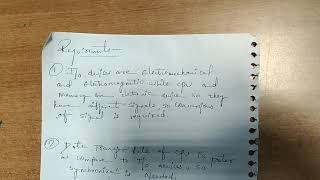 Requirements
① I/o devices are Electromechanical
and Eletromagnetic while CPU and
memory are eletronic device so they
have different signals so conversions
of signal is required.
② Data Transfer Rate of CPU is faster
as compare to I/o devices so
synchronizes is Needed.